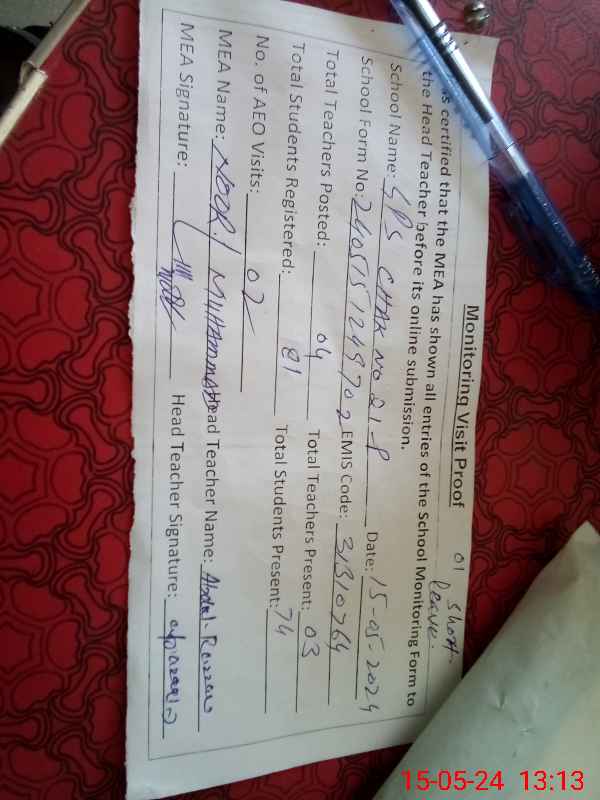 Monitoring Visit Proof
01 Short
leave.
is certified that the MEA has shown all entries of the School Monitoring Form to
the Head Teacher before its online submission.
School Name: GPS CHAK NO 21-P Date: 15-05-2024
School Form No: 2405151249702 EMIS Code: 31310764
Total Teachers Posted: 04 Total Teachers Present: 03
Total Students Registered: 81 Total Students Present: 74
No. of AEO Visits: 02
MEA Name: NOOR MUHAMMAD Head Teacher Name: Abdul Razzaq
MEA Signature: Head Teacher Signature:
15-05-24 13:13